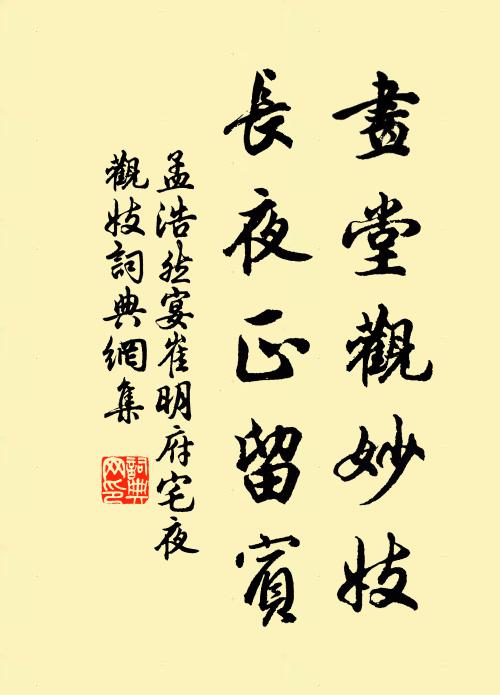 畫堂觀妙妓
長夜正留賓
孟浩然宴崔明府宅夜
觀妓詞典網集
詞典
网印